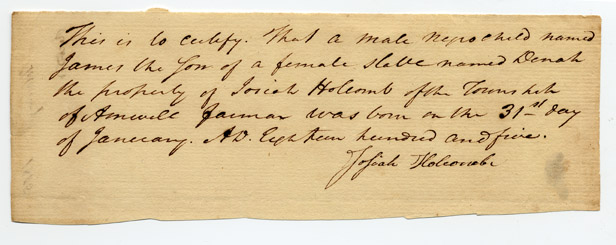 This is to certify. That a male Negro child named
James the Son of a female Slave named Denah
the property of Josiah Holcomb of the Township
of Amwell farmar was born on the 31st day
of January. A.D. Eighteen hundred and five.
Josiah Holcombe